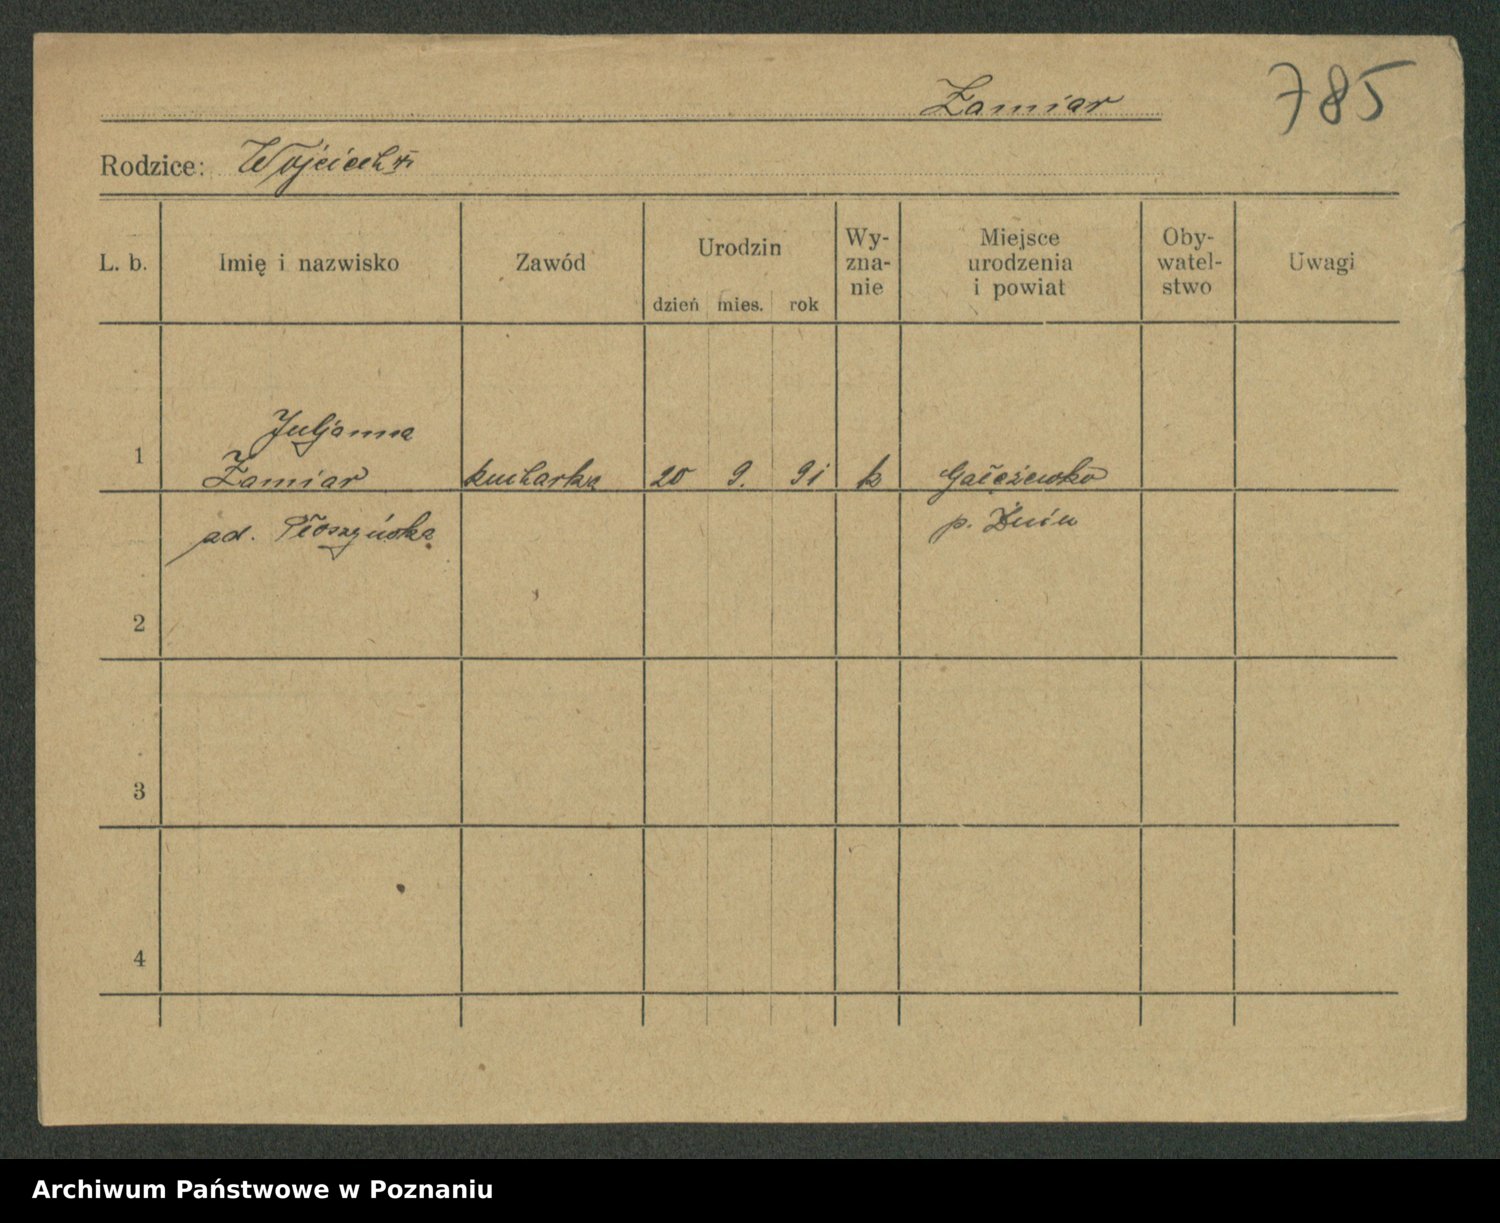 Zamiar
785
Rodzice: Wojciech
L. b. Imię i nazwisko Zawód Urodzin dzień mies. rok Wy-zna-nie Miejsce urodzenia i powiat Oby-watel-stwo Uwagi
Juljanna
1 Zamiar kucharka 20 9. 91 k Gałczewko
ad. Płoszyńska p. Żnin
2
3
4
Archiwum Państwowe w Poznaniu